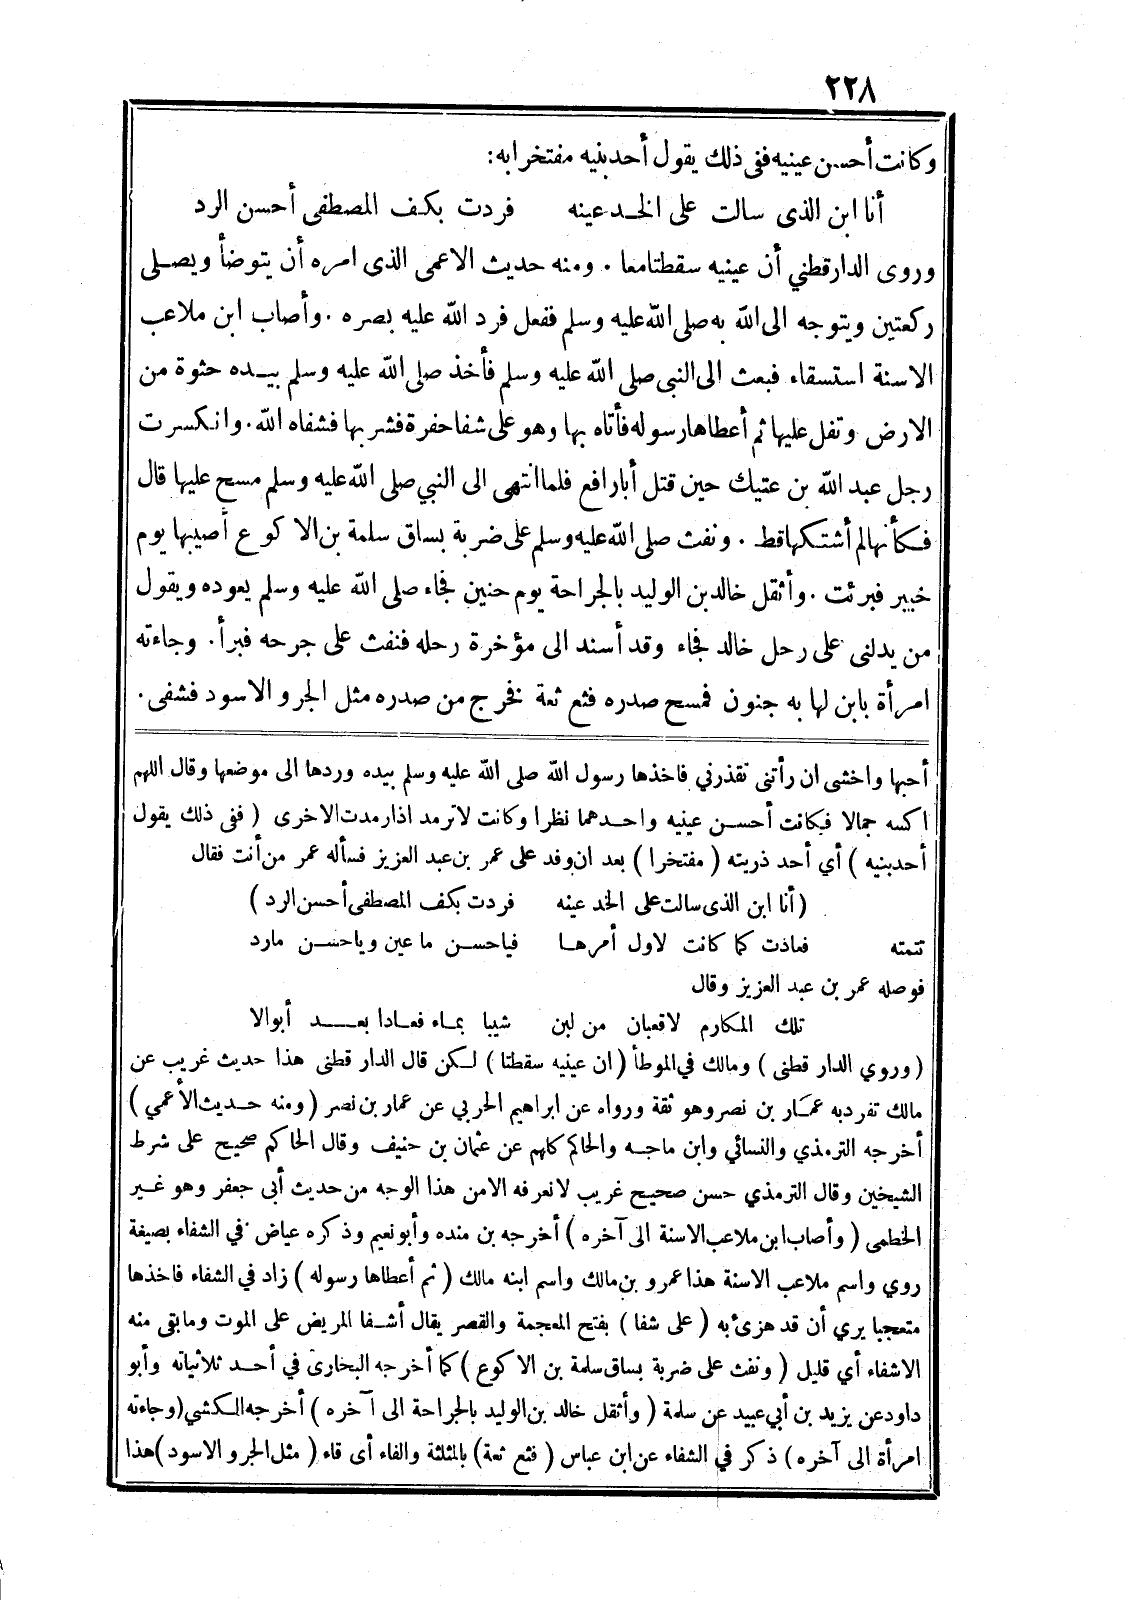 ٢٢٨
وكانت أحسن عينيه ففى ذلك يقول أحد بنيه مفتخرا به:
أنا ابن الذى سالت على الخد عينه فردت بكف المصطفى أحسن الرد
وروى الدارقطني أن عينيه سقطتا معا . ومنه حديث الاعمى الذى امره أن يتوضأ ويصلى
ركعتين ويتوجه الى الله به صلى الله عليه وسلم ففعل فرد الله عليه بصره . وأصاب ابن ملاعب
الاسنة استسقاء فبعث الى النبى صلى الله عليه وسلم فأخذ صلى الله عليه وسلم بيده حثوة من
الارض وتفل عليها ثم أعطاها رسوله فأتاه بها وهو على شفا حفرة فشربها فشفاه الله . وانكسرت
رجل عبد الله بن عتيك حين قتل أبا رافع فلما انتهى الى النبي صلى الله عليه وسلم مسح عليها قال
فكأنها لم أشتكها قط . ونفث صلى الله عليه وسلم على ضربة بساق سلمة بن الاكوع أصيبها يوم
خيبر فبرئت . وأثقل خالد بن الوليد بالجراحة يوم حنين فجاء صلى الله عليه وسلم يعوده ويقول
من يدلنى على رحل خالد فجاء وقد أسند الى مؤخرة رحله فنفث على جرحه فبرأ . وجاءته
امرأة بابن لها به جنون فمسح صدره فثع ثعة فخرج من صدره مثل الجرو الاسود فشفى .
أحبها واخشى ان رأتنى تقذرني فاخذها رسول الله صلى الله عليه وسلم بيده وردها الى موضعها وقال اللهم
اكسه جمالا فكانت أحسن عينيه واحدهما نظرا وكانت لا ترمد اذا رمدت الاخرى ( ففى ذلك يقول
أحد بنيه ) أي أحد ذريته ( مفتخرا ) بعد ان وفد على عمر بن عبد العزيز فسأله عمر من أنت فقال
( أنا ابن الذى سالت على الخد عينه فردت بكف المصطفى أحسن الرد )
تتمته فعاذت كما كانت لاول أمرها فياحسن ما عين وياحسن مارد
فوصله عمر بن عبد العزيز وقال
تلك المكارم لا قعبان من لبن شيبا بماء فعادا بعد أبوالا
( وروي الدار قطنى ) ومالك في الموطأ ( ان عينيه سقطتا ) لكن قال الدار قطنى هذا حديث غريب عن
مالك تفرد به عمار بن نصر وهو ثقة ورواه عن ابراهيم الحربي عن عمار بن نصر ( ومنه حديث الأعمي )
أخرجه الترمذي والنسائي وابن ماجه والحاكم كلهم عن عثمان بن حنيف وقال الحاكم صحيح على شرط
الشيخين وقال الترمذي حسن صحيح غريب لا نعرفه الا من هذا الوجه من حديث أبى جعفر وهو غير
الخطمى ( وأصاب ابن ملاعب الاسنة الى آخره ) أخرجه بن منده وأبو نعيم وذكره عياض في الشفاء بصيغة
روي واسم ملاعب الاسنة هذا عمرو بن مالك واسم ابنه مالك ( ثم أعطاها رسوله ) زاد في الشفاء فاخذها
متعجبا يري أن قد هزئ به ( على شفا ) بفتح المعجمة والقصر يقال أشفا المريض على الموت وما بقى منه
الا شفاء أي قليل ( ونفث على ضربة بساق سلمة بن الاكوع ) كما أخرجه البخارى في أحد ثلاثياته وأبو
داود عن يزيد بن أبي عبيد عن سلمة ( وأثقل خالد بن الوليد بالجراحة الى آخره ) أخرجه الكشي ( وجاءته
امرأة الى آخره ) ذكر في الشفاء عن ابن عباس ( فثع ثعة ) بالمثلثة والفاء أى قاء ( مثل الجرو الاسود ) هذا